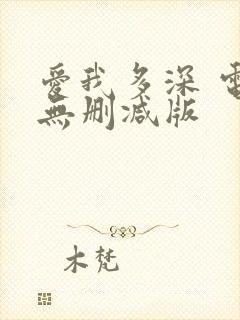 愛我多深 電
無刪減版
木梵